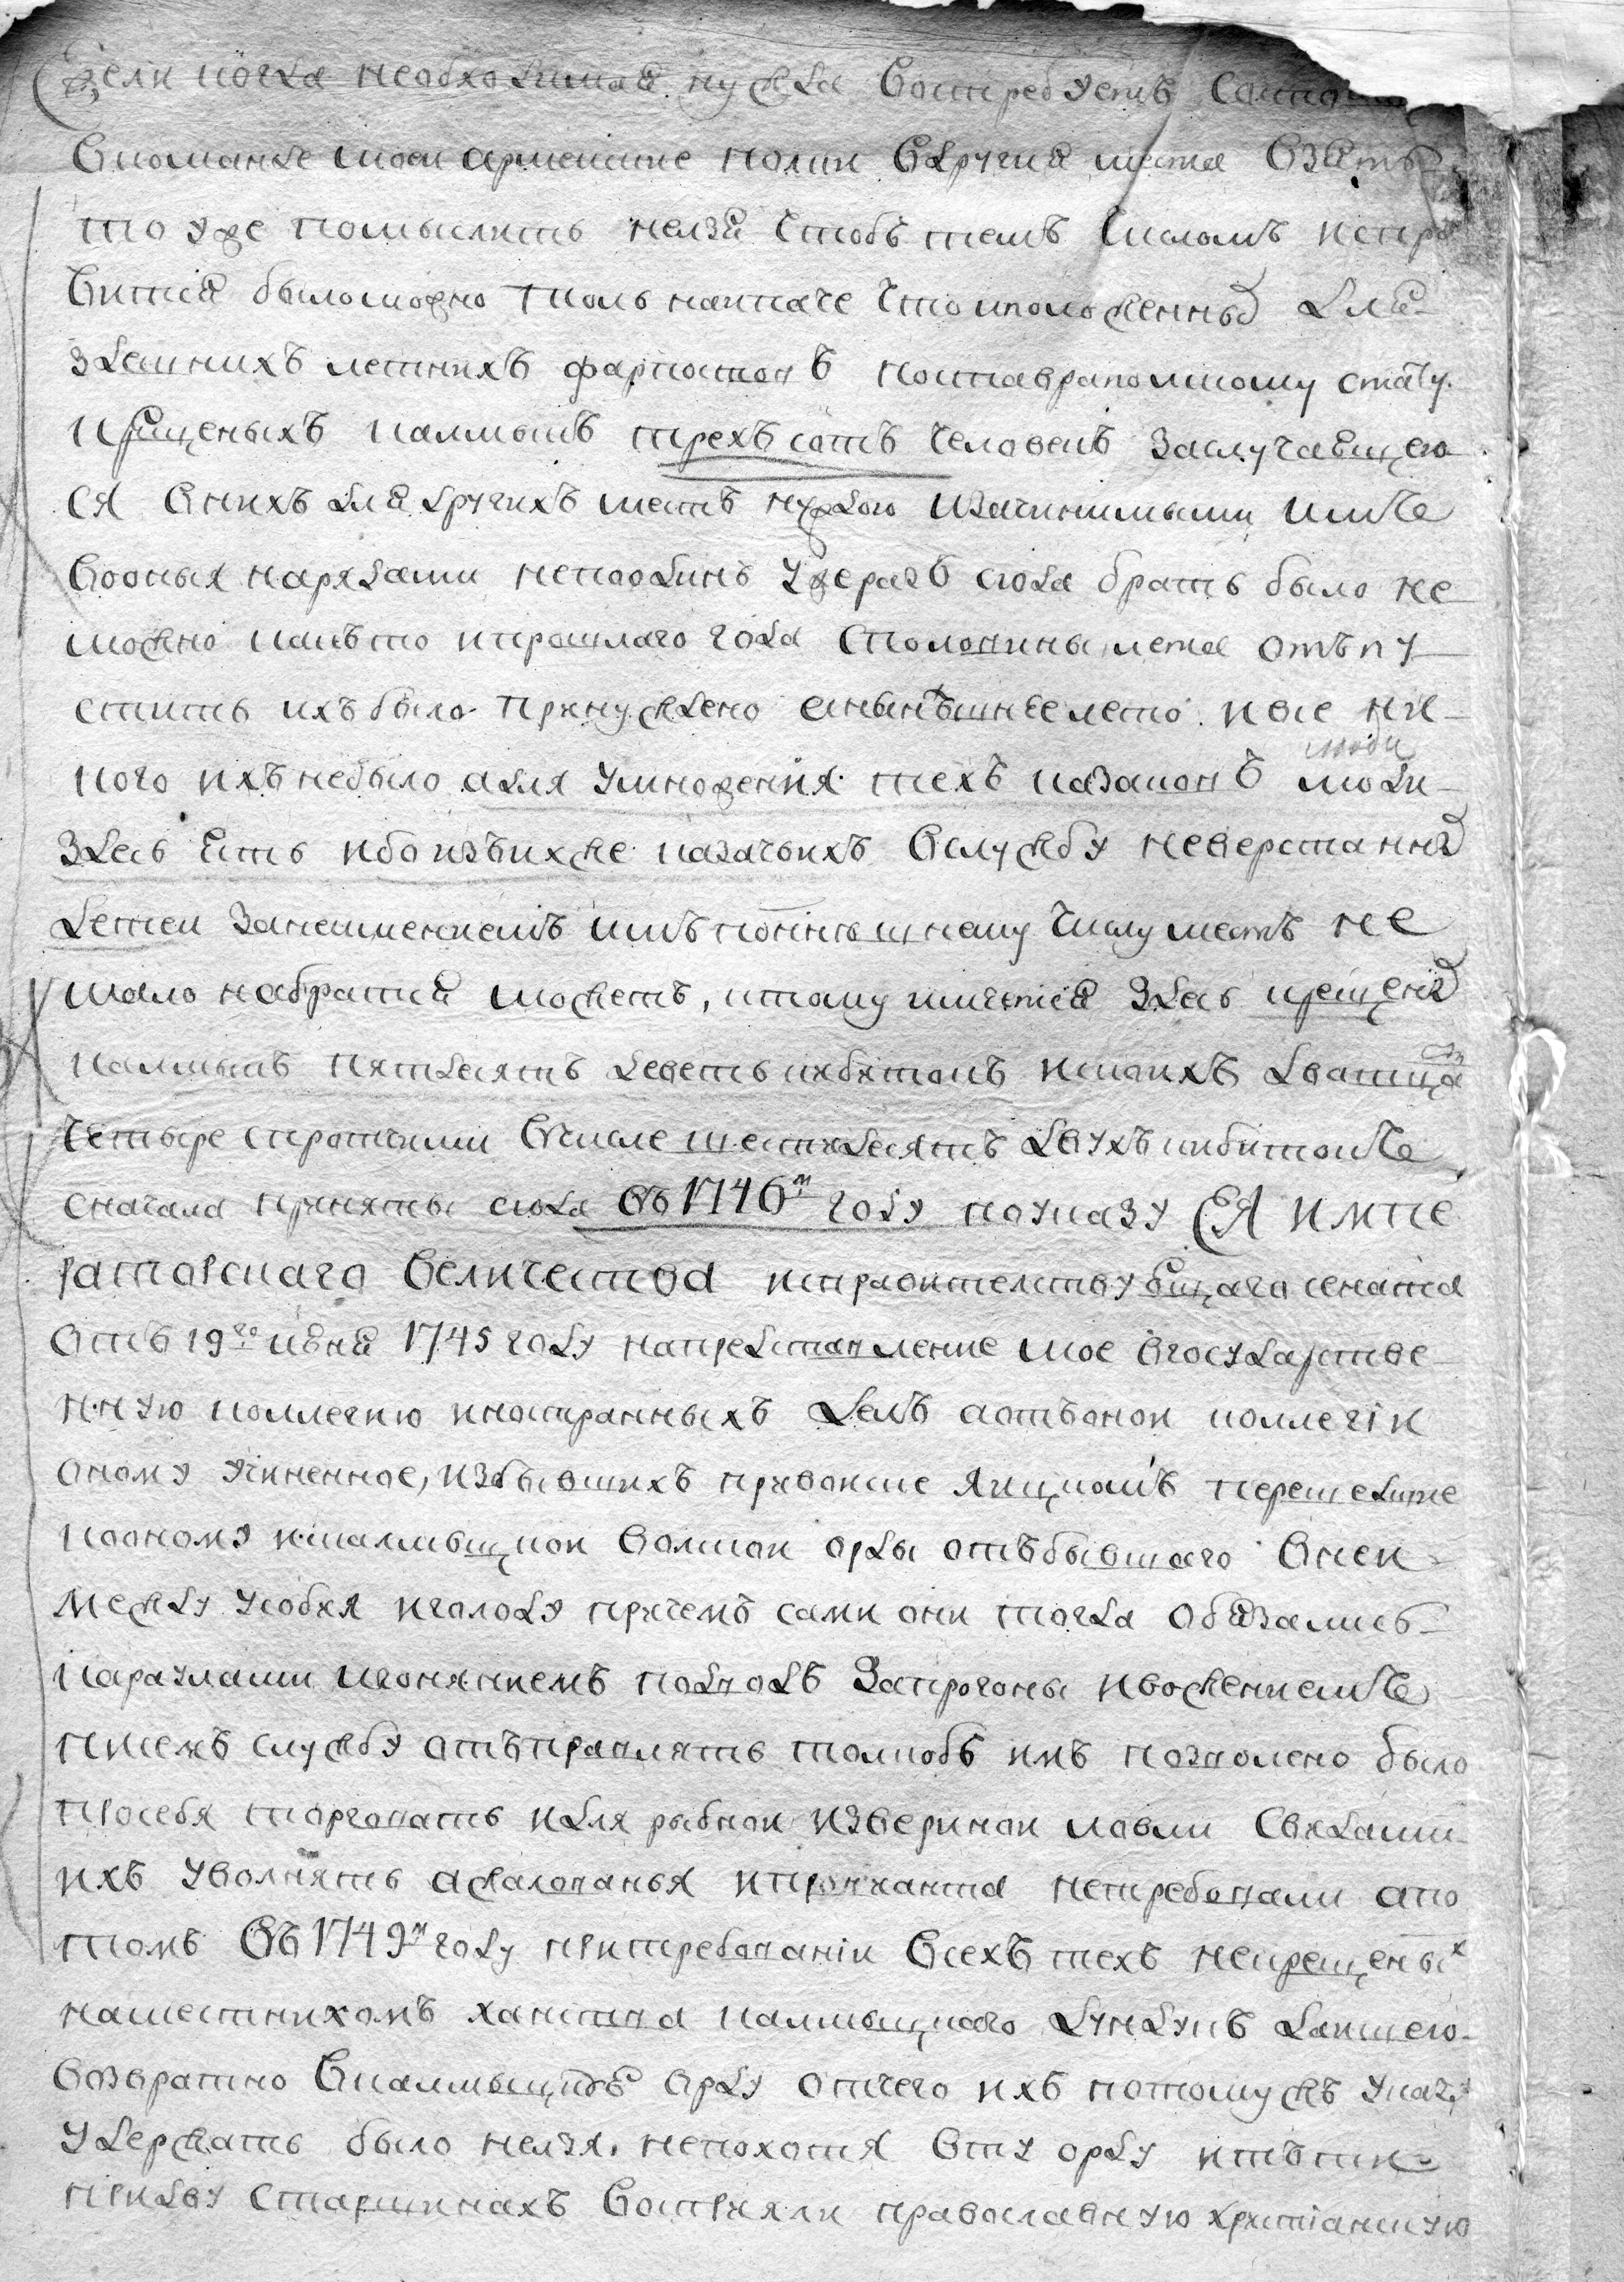 Ежели когда необходимая нужда востребуетъ
вкоманде моеи армеиские полки вдругия места взять
то уже помыслить нелзя чтобъ темъ числомъ испра
вится было можно толь наипаче что иположенных для
здешнихъ летнихъ фарпостовъ поставрополскому стату
крещеныхъ калмыкъ трехъ сотъ человекъ заслучающею
ся вних для другихъ местъ нуждою икагинимыми имже
воокыя нарядами непоодинъ ужеразъ сюда брать было не
можно какъто ипрошлаго года сполонины лета отъпу
стить ихъ было принуждено анынѣшнее лето ивсе ни
кого ихъ небыло адля умножения техъ казаковъ люди
люди
здесь есть ибо изъихже казачьихъ вслужбу неверстанных
детеи занеимениемъ имъ понынешнему числу местъ не
мало набратся можетъ, ктому имеются здесь крещеных
калмыкъ пятдесятъ деветь кибитокъ исихъ дватца
четыре спротчими вчисле шестидесятъ двухъ кибитокже
сначала приняты сюда въ 1746м году поуказу ЕЯ ИМПЕ
раторскаго величества исправителствующаго сената
отъ 19го июня 1745 году напредставление мое вгосударстве
нную коллегию иностранныхъ делъ аотъонои коллегіи
оному учиненное, избывшихъ привоиске яицкомъ перешедшие
поономуж искалмыцкои волскои орды отъбывшаго внеи
междуусобия иголоду причемъ сами они тогда обязались
караулами игонянием подводъ запрогоны ивожениемже
писемъ службу отъправлять толкобъ имъ позволено было
просебя торговать идля рыбнои извериной ловли свядами
ихъ уволнять ажалованья ипровианта нетребовали апо
томъ въ 1749м году притребованіи всехъ техъ некрещеных
наместникомъ ханства калмыцкаго дундукъ дакшею
возвратно вкалмыцкую орду отчего ихъ потомужъ указу
удержать было нелзя. непохотя вту орду итътти
прилву старшинахъ восприяли православную христианскую